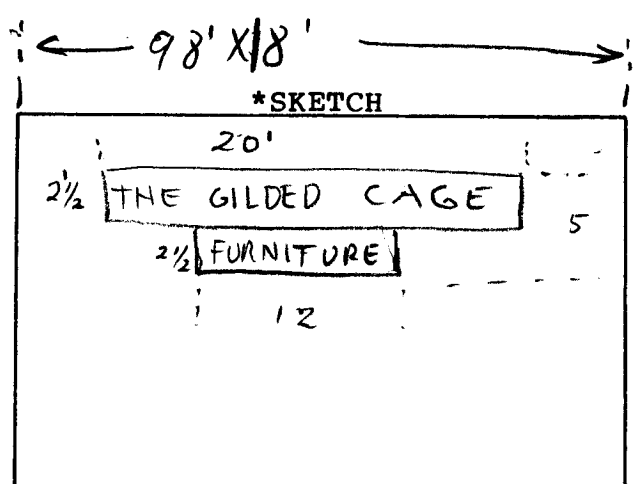 98' X 18'
*SKETCH
20'
2 1/2 THE GILDED CAGE 5
2 1/2 FURNITURE
12